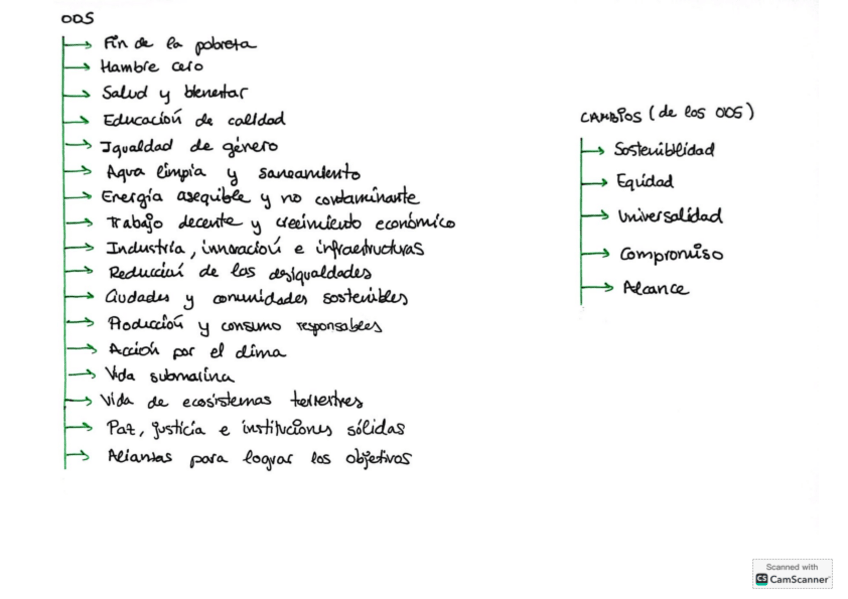 ODS
Fin de la pobreza
Hambre cero
Salud y bienestar
Educación de calidad
Igualdad de género
Agua limpia y saneamiento
Energía asequible y no contaminante
Trabajo decente y crecimiento económico
Industria, innovación e infraestructuras
Reducción de las desigualdades
Ciudades y comunidades sostenibles
Producción y consumo responsables
Acción por el clima
Vida submarina
Vida de ecosistemas terrestres
Paz, justicia e instituciones sólidas
Alianzas para lograr los objetivos
CAMBIOS (de los ODS)
Sostenibilidad
Equidad
Universalidad
Compromiso
Alcance
Scanned with
CS CamScanner